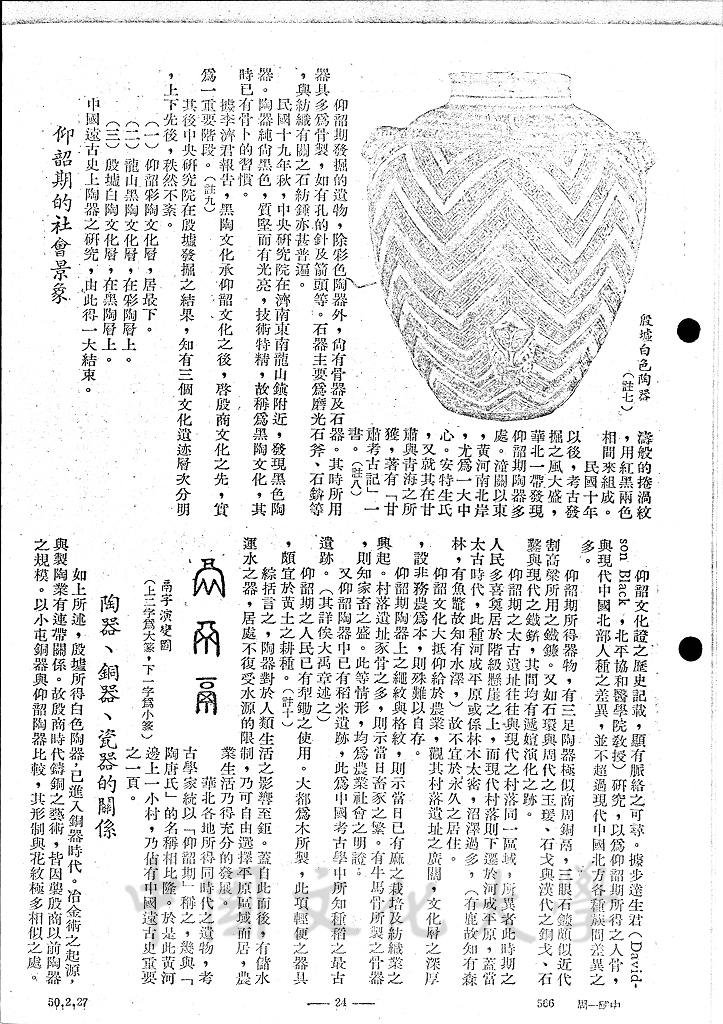 殷墟白色陶器
(註七)
濤般的捲渦紋
,用紅黑兩色
相間來組成。
民國十年
以後,考古發
掘之風大盛,
華北一帶發現
仰韶期陶器多
處。潼關以東
,黃河南北岸
,尤爲一大中
心。安特生氏
,又就其在甘
肅與青海之所
獲,著有「甘
肅考古記」一
書。(註八)
仰韶期發掘的遺物,除彩色陶器外,尙有骨器及石器。其時所用
器具多爲骨製,如有孔的針及箭頭等。石器主要爲磨光石斧、石錛等
,與紡織有關之石紡錘亦甚普遍。
民國十九年秋,中央硏究院在濟南東南龍山鎭附近,發現黑色陶
器。陶器純尙黑色,質堅而有光亮,技術特精,故稱爲黑陶文化,其
時已有骨卜的習慣。
據李濟君報告,黑陶文化承仰韶文化之後,啓殷商文化之先,實
爲一重要階段。(註九)
其後中央硏究院在殷墟發掘之結果,知有三個文化遺迹層次分明
,上下先後,秩然不紊。
(一)仰韶彩陶文化層,居最下。
(二)龍山黑陶文化層,在彩陶層上。
(三)殷墟白陶文化層,在黑陶層上。
中國遠古史上陶器之硏究,由此得一大結束。
仰韶期的社會景象
仰韶文化證之歷史記載,頗有脈絡之可尋。據步達生君(David-
son Black,北平協和醫學院敎授)硏究,以爲仰韶期所得之人骨,
與現代中國北部人種之差異,並不超過現代中國北方各種族間差異之
多。
仰韶期所得器物,有三足陶器極似商周銅鬲,三眼石鐮頗似近代
割高粱所用之鐵鐮。又如石環與周代之玉瑗、石戈與漢代之銅戈、石
鏨與現代之鐵錛,其間均有遞嬗演化之跡。
仰韶期之太古遺址往往與現代之村落同一區域,所異者此時期之
人民多喜奠居於階級懸崖之上,而現代村落則下遷於河成平原,蓋當
太古時代,此種河成平原或係林木太密,沼澤過多,(有鹿故知有森
林,有魚鼈故知有水澤,)故不宜於永久之居住。
仰韶文化大抵仰給於農業,觀其村落遺址之廣闊,文化層之深厚
,設非務農爲本,則殊難以自存。
仰韶期陶器上之繩紋與格紋,則示當日已有麻之栽培及紡織業之
興起。村落遺址豕骨之多,則示當日畜豕之繁。有牛馬骨所製之骨器
,則知家畜之盛。此等情形,均爲農業社會之明證。
又仰韶陶器中已有稻米遺跡,此爲中國考古學中所知種稻之最古
遺跡。(其詳俟大禹章述之)
仰韶期之人民已有犁鋤之使用。大都爲木所製,此項輕便之器具
,頗宜於黃土之耕種。(註十)
綜括言之,陶器對於人類生活之影響至鉅。蓋自此而後,有儲水
運水之器,居處不復受水源的限制,乃可自由選擇平原區域而居,農
業生活乃得充分的發展。
華北各地所得同時代之遺物,考
古學家統以「仰韶期」稱之,幾與「
陶唐氏」的名稱相比隆。於是此黃河
邊上一小村,乃佔有中國遠古史重要
之一頁。
鬲字演變圖
(上二字爲大篆,下一字爲小篆)
陶器、銅器、瓷器的關係
如上所述,殷墟所得白色陶器,已進入銅器時代。冶金術之起源,
與製陶業有連帶關係。故殷商時代鑄銅之藝術,皆因襲殷商以前陶器
之規模。以小屯銅器與仰韶陶器比較,其形制與花紋極多相似之處。
中華文化大學
50,2,27
—24—
566
周一育中